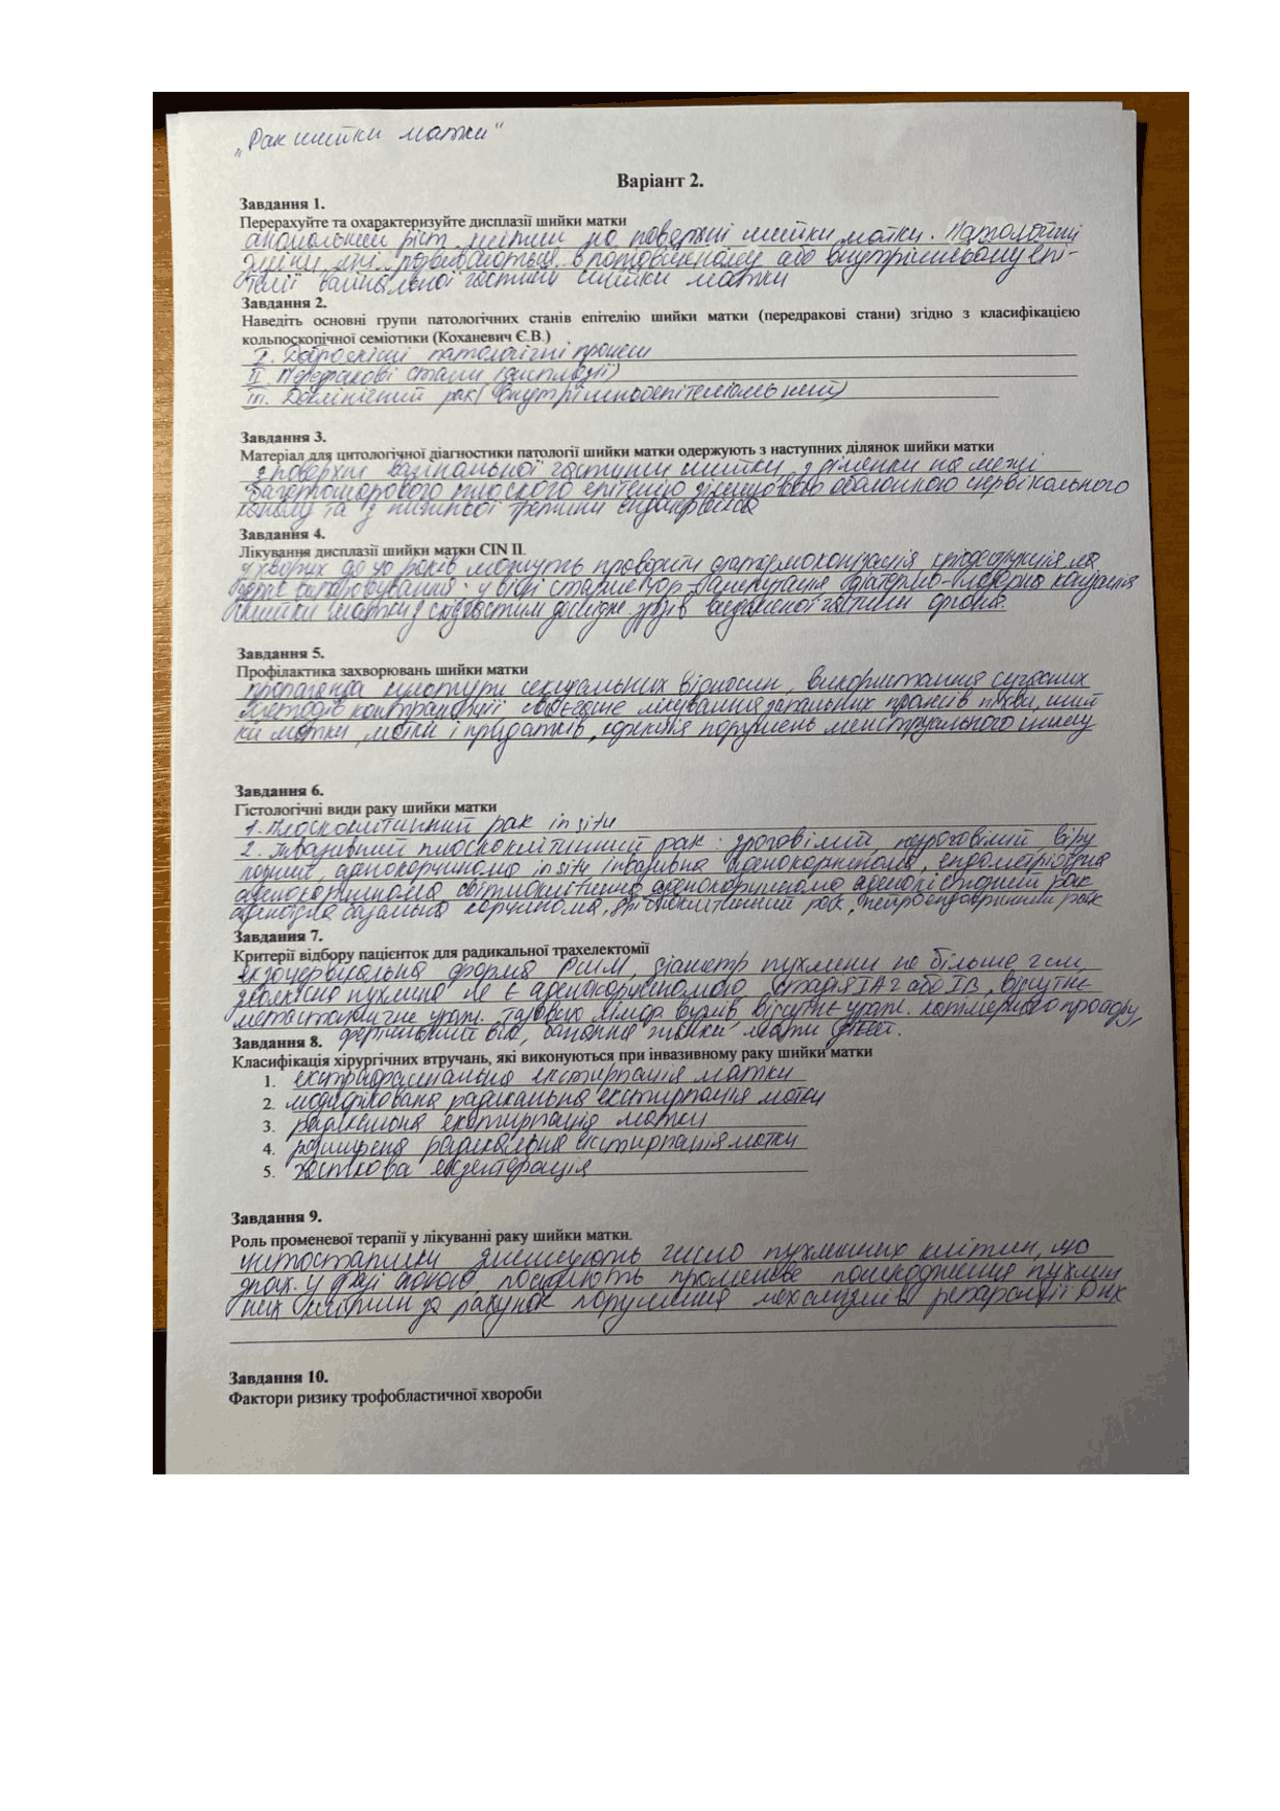 „Рак шийки матки"
Варіант 2.
Завдання 1.
Перерахуйте та охарактеризуйте дисплазії шийки матки
аномальний ріст клітин на поверхні шийки матки. Патологічні
зміни, які розвиваються в ендоцервікальному або внутрішньому епі-
телії вагінальної частини шийки матки
Завдання 2.
Наведіть основні групи патологічних станів епітелію шийки матки (передракові стани) згідно з класифікацією
кольпоскопічної семіотики (Коханевич Є.В.)
I. Доброякісні патологічні процеси
II. Передракові стани (дисплазії)
III. Доклінічний рак (внутрішньоепітеліальний)
Завдання 3.
Матеріал для цитологічної діагностики патології шийки матки одержують з наступних ділянок шийки матки
з поверхні вагінальної частини шийки, з ділянки на межі
багатошарового плоского епітелію зі слизовою оболонкою цервікального
каналу та з нижньої третини ендоцервікса
Завдання 4.
Лікування дисплазії шийки матки CIN II.
у хворих до 40 років можуть проводити діатермоконізація, кріодеструкція
у віці старше 40р - діатермо-конізація
шийки матки з наступним дослідж. зрізів видаленої частини органа.
Завдання 5.
Профілактика захворювань шийки матки
пропаганда культури сексуальних відносин, використання сучасних
методів контрацепції, своєчасне лікування запальних процесів піхви, ший
ки матки, матки і придатків, корекція порушень менструального циклу
Завдання 6.
Гістологічні види раку шийки матки
1. Плоскоклітинний рак in situ
2. Інвазивний плоскоклітинний рак: зроговілий, незроговілий, веру
козний, аденокарцинома in situ, інвазивна аденокарцинома, ендометріоїдна
аденокарцинома, світлоклітинна аденокарцинома, аденокістозний рак
аденоїдна базальна карцинома, дрібноклітинний рак, нейроендокринний рак
Завдання 7.
Критерії відбору пацієнток для радикальної трахелектомії
екзоцервікальна форма РШМ, діаметр пухлини не більше 2см,
злоякісна пухлина не є аденокарциномою, стадія IA2 або IB, відсутнє
метастатичне ураж. тазових лімф. вузлів, відсутнє ураж. капілярного простору,
фертильний вік, бажання жінки мати дітей.
Завдання 8.
Класифікація хірургічних втручань, які виконуються при інвазивному раку шийки матки
1. екстрафасціальна екстирпація матки
2. модифікована радикальна екстирпація матки
3. радикальна екстирпація матки
4. розширена радикальна екстирпація матки
5. часткова екзентерація
Завдання 9.
Роль променевої терапії у лікуванні раку шийки матки.
цитостатики зменшують число пухлинних клітин, що
знах. у фазі спокою, посилюють променеве пошкодження пухлин
них клітин за рахунок порушення механізмів репарації ДНК
Завдання 10.
Фактори ризику трофобластичної хвороби